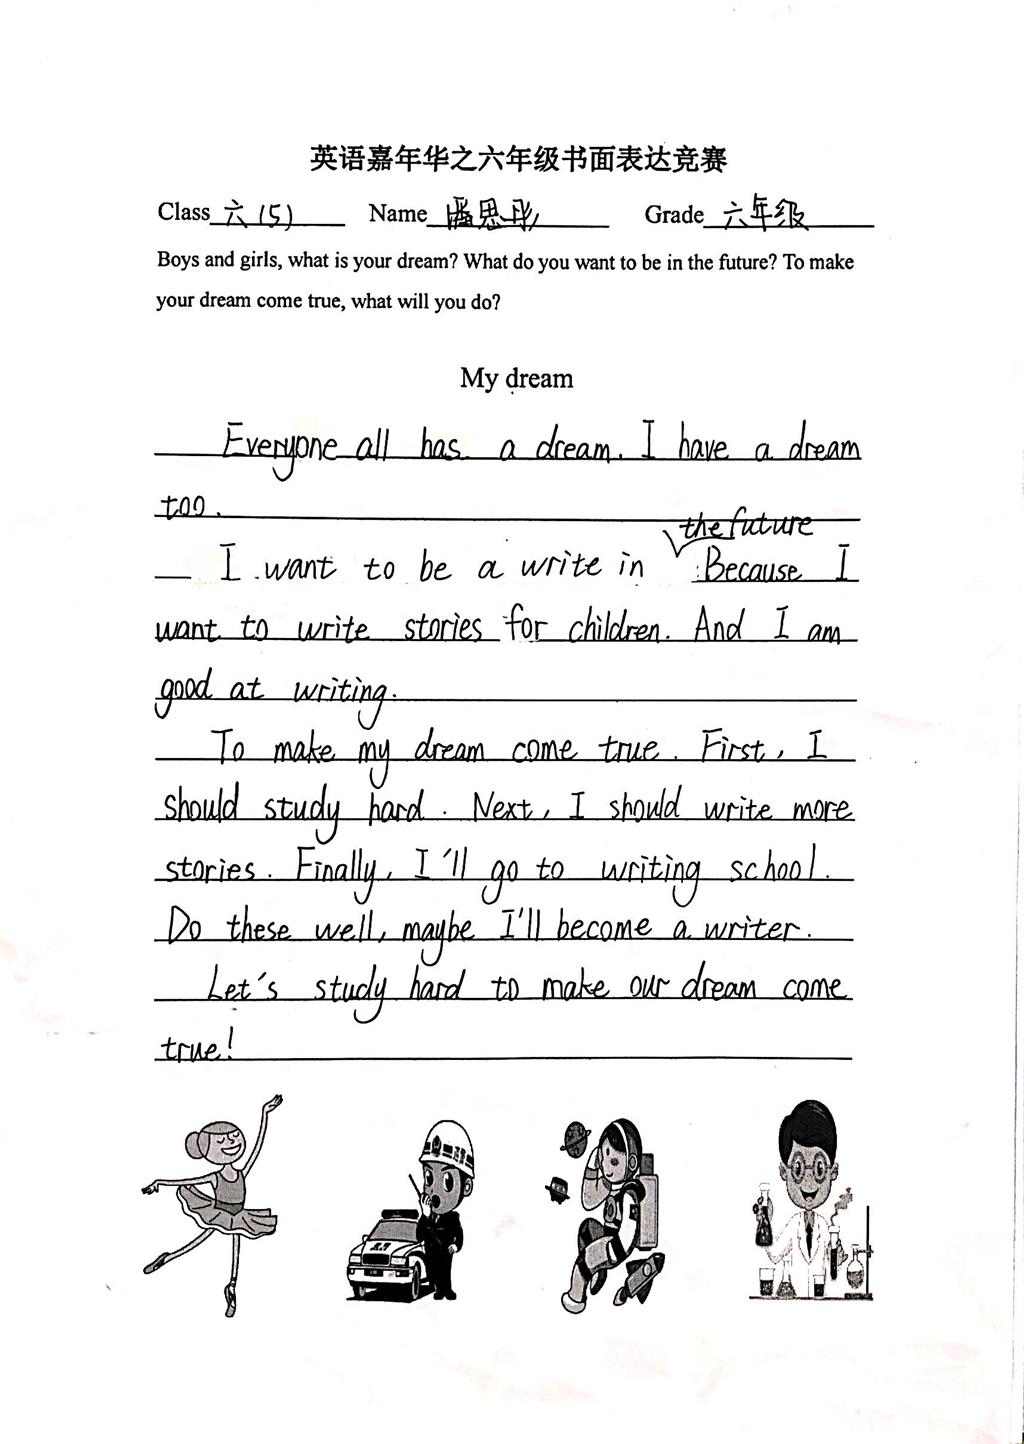 英语嘉年华之六年级书面表达竞赛
Class 六(5) Name 潘思彤 Grade 六年级
Boys and girls, what is your dream? What do you want to be in the future? To make
your dream come true, what will you do?
My dream
Everyone all has a dream. I have a dream
too.
the future
I want to be a write in Because I
want to write stories for children. And I am
good at writing.
To make my dream come true. First, I
should study hard. Next, I should write more
stories. Finally, I'll go to writing school.
Do these well, maybe I'll become a writer.
Let's study hard to make our dream come
true!